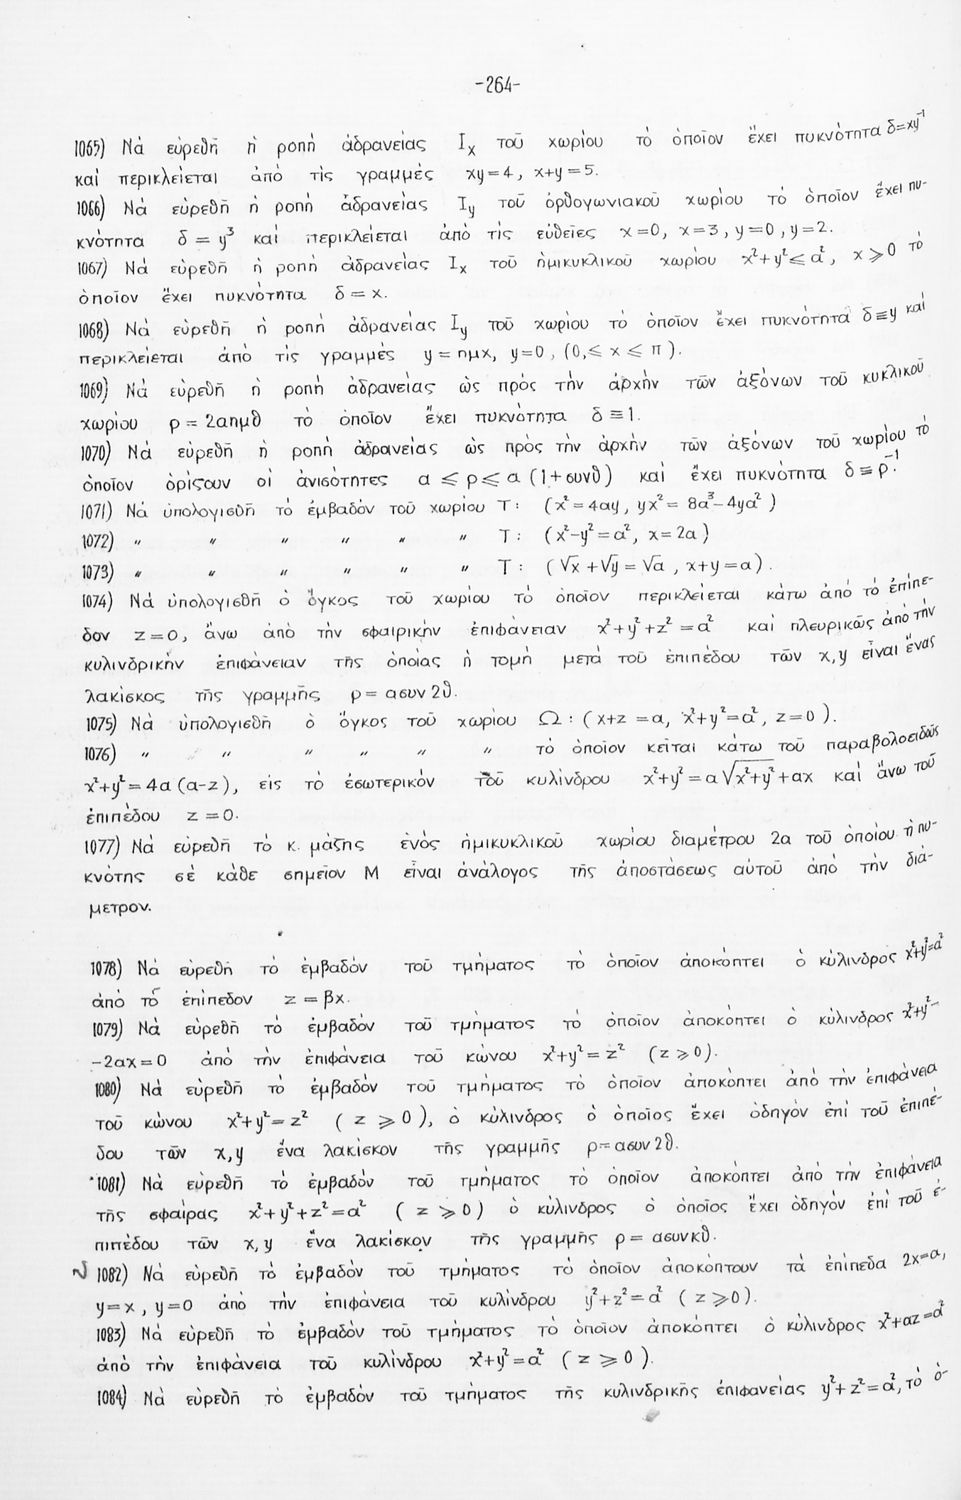 -264-
1065) Νὰ εὑρεθῆ ἡ ροπὴ ἀδρανείας Ix τοῦ χωρίου τὸ ὁποῖον ἔχει πυκνότητα δ=xy⁻¹
καὶ περικλείεται ἀπὸ τὶς γραμμές xy=4, x+y=5.
1066) Νὰ εὑρεθῆ ἡ ροπὴ ἀδρανείας Iy τοῦ ὀρθογωνιακοῦ χωρίου τὸ ὁποῖον ἔχει πυ-
κνότητα δ = y³ καὶ περικλείεται ἀπὸ τὶς εὐθεῖες x=0, x=3, y=0, y=2.
1067) Νὰ εὑρεθῆ ἡ ροπὴ ἀδρανείας Ix τοῦ ἡμικυκλικοῦ χωρίου x²+y²≤α², x≥0 τὸ
ὁποῖον ἔχει πυκνότητα δ=x.
1068) Νὰ εὑρεθῆ ἡ ροπὴ ἀδρανείας Iy τοῦ χωρίου τὸ ὁποῖον ἔχει πυκνότητα δ≡y καὶ
περικλείεται ἀπὸ τὶς γραμμὲς y=ημx, y=0, (0,≤ x ≤ π).
1069) Νὰ εὑρεθῆ ἡ ροπὴ ἀδρανείας ὡς πρὸς τὴν ἀρχὴν τῶν ἀξόνων τοῦ κυκλικοῦ
χωρίου ρ=2αημθ τὸ ὁποῖον ἔχει πυκνότητα δ≡1.
1070) Νὰ εὑρεθῆ ἡ ροπὴ ἀδρανείας ὡς πρὸς τὴν ἀρχὴν τῶν ἀξόνων τοῦ χωρίου τὸ
ὁποῖον ὁρίζουν οἱ ἀνισότητες α ≤ ρ ≤ α (1+συνθ) καὶ ἔχει πυκνότητα δ≡ρ⁻¹.
1071) Νὰ ὑπολογισθῆ τὸ ἐμβαδὸν τοῦ χωρίου Τ: (x²=4αy, yx²=8α³-4yα²)
1072) " " " " " " Τ: (x²-y²=α², x=2α)
1073) " " " " " " Τ: (√x+√y=√α, x+y=α).
1074) Νὰ ὑπολογισθῆ ὁ ὄγκος τοῦ χωρίου τὸ ὁποῖον περικλείεται κάτω ἀπὸ τὸ ἐπίπε-
δον z=0, ἄνω ἀπὸ τὴν σφαιρικὴν ἐπιφάνειαν x²+y²+z²=α² καὶ πλευρικῶς ἀπὸ τὴν
κυλινδρικὴν ἐπιφάνειαν τῆς ὁποίας ἡ τομὴ μετὰ τοῦ ἐπιπέδου τῶν x,y εἶναι ἕνας
λακίσκος τῆς γραμμῆς ρ=ασυν2θ.
1075) Νὰ ὑπολογισθῆ ὁ ὄγκος τοῦ χωρίου Ω: (x+z=α, x²+y²=α², z=0).
1076) " " " " " " τὸ ὁποῖον κεῖται κάτω τοῦ παραβολοειδῶς
x²+y²=4α(α-z), εἰς τὸ ἐσωτερικόν τοῦ κυλίνδρου x²+y²=α√x²+y²+αx καὶ ἄνω τοῦ
ἐπιπέδου z=0.
1077) Νὰ εὑρεθῆ τὸ κ. μάζης ἑνὸς ἡμικυκλικοῦ χωρίου διαμέτρου 2α τοῦ ὁποίου ἡ πυ-
κνότης σὲ κάθε σημεῖον Μ εἶναι ἀνάλογος τῆς ἀποστάσεως αὐτοῦ ἀπὸ τὴν διά-
μετρον.
1078) Νὰ εὑρεθῆ τὸ ἐμβαδὸν τοῦ τμήματος τὸ ὁποῖον ἀποκόπτει ὁ κύλινδρος x²+y²=α²
ἀπὸ τὸ ἐπίπεδον z=βx.
1079) Νὰ εὑρεθῆ τὸ ἐμβαδὸν τοῦ τμήματος τὸ ὁποῖον ἀποκόπτει ὁ κύλινδρος x²+y²-
-2αx=0 ἀπὸ τὴν ἐπιφάνεια τοῦ κώνου x²+y²=z² (z≥0).
1080) Νὰ εὑρεθῆ τὸ ἐμβαδὸν τοῦ τμήματος τὸ ὁποῖον ἀποκόπτει ἀπὸ τὴν ἐπιφάνεια
τοῦ κώνου x²+y²=z² (z≥0), ὁ κύλινδρος ὁ ὁποῖος ἔχει ὁδηγὸν ἐπὶ τοῦ ἐπιπέ-
δου τῶν x,y ἕνα λακίσκον τῆς γραμμῆς ρ=ασυν2θ.
1081) Νὰ εὑρεθῆ τὸ ἐμβαδὸν τοῦ τμήματος τὸ ὁποῖον ἀποκόπτει ἀπὸ τὴν ἐπιφάνεια
τῆς σφαίρας x²+y²+z²=α² (z≥0) ὁ κύλινδρος ὁ ὁποῖος ἔχει ὁδηγὸν ἐπὶ τοῦ ἐ-
πιπέδου τῶν x,y ἕνα λακίσκον τῆς γραμμῆς ρ=ασυνκθ.
1082) Νὰ εὑρεθῆ τὸ ἐμβαδὸν τοῦ τμήματος τὸ ὁποῖον ἀποκόπτουν τὰ ἐπίπεδα 2x=α,
y=x, y=0 ἀπὸ τὴν ἐπιφάνεια τοῦ κυλίνδρου y²+z²=α² (z≥0).
1083) Νὰ εὑρεθῆ τὸ ἐμβαδὸν τοῦ τμήματος τὸ ὁποῖον ἀποκόπτει ὁ κύλινδρος x²+αz=α²
ἀπὸ τὴν ἐπιφάνεια τοῦ κυλίνδρου x²+y²=α² (z≥0).
1084) Νὰ εὑρεθῆ τὸ ἐμβαδὸν τοῦ τμήματος τῆς κυλινδρικῆς ἐπιφανείας y²+z²=α², τὸ ὁ-